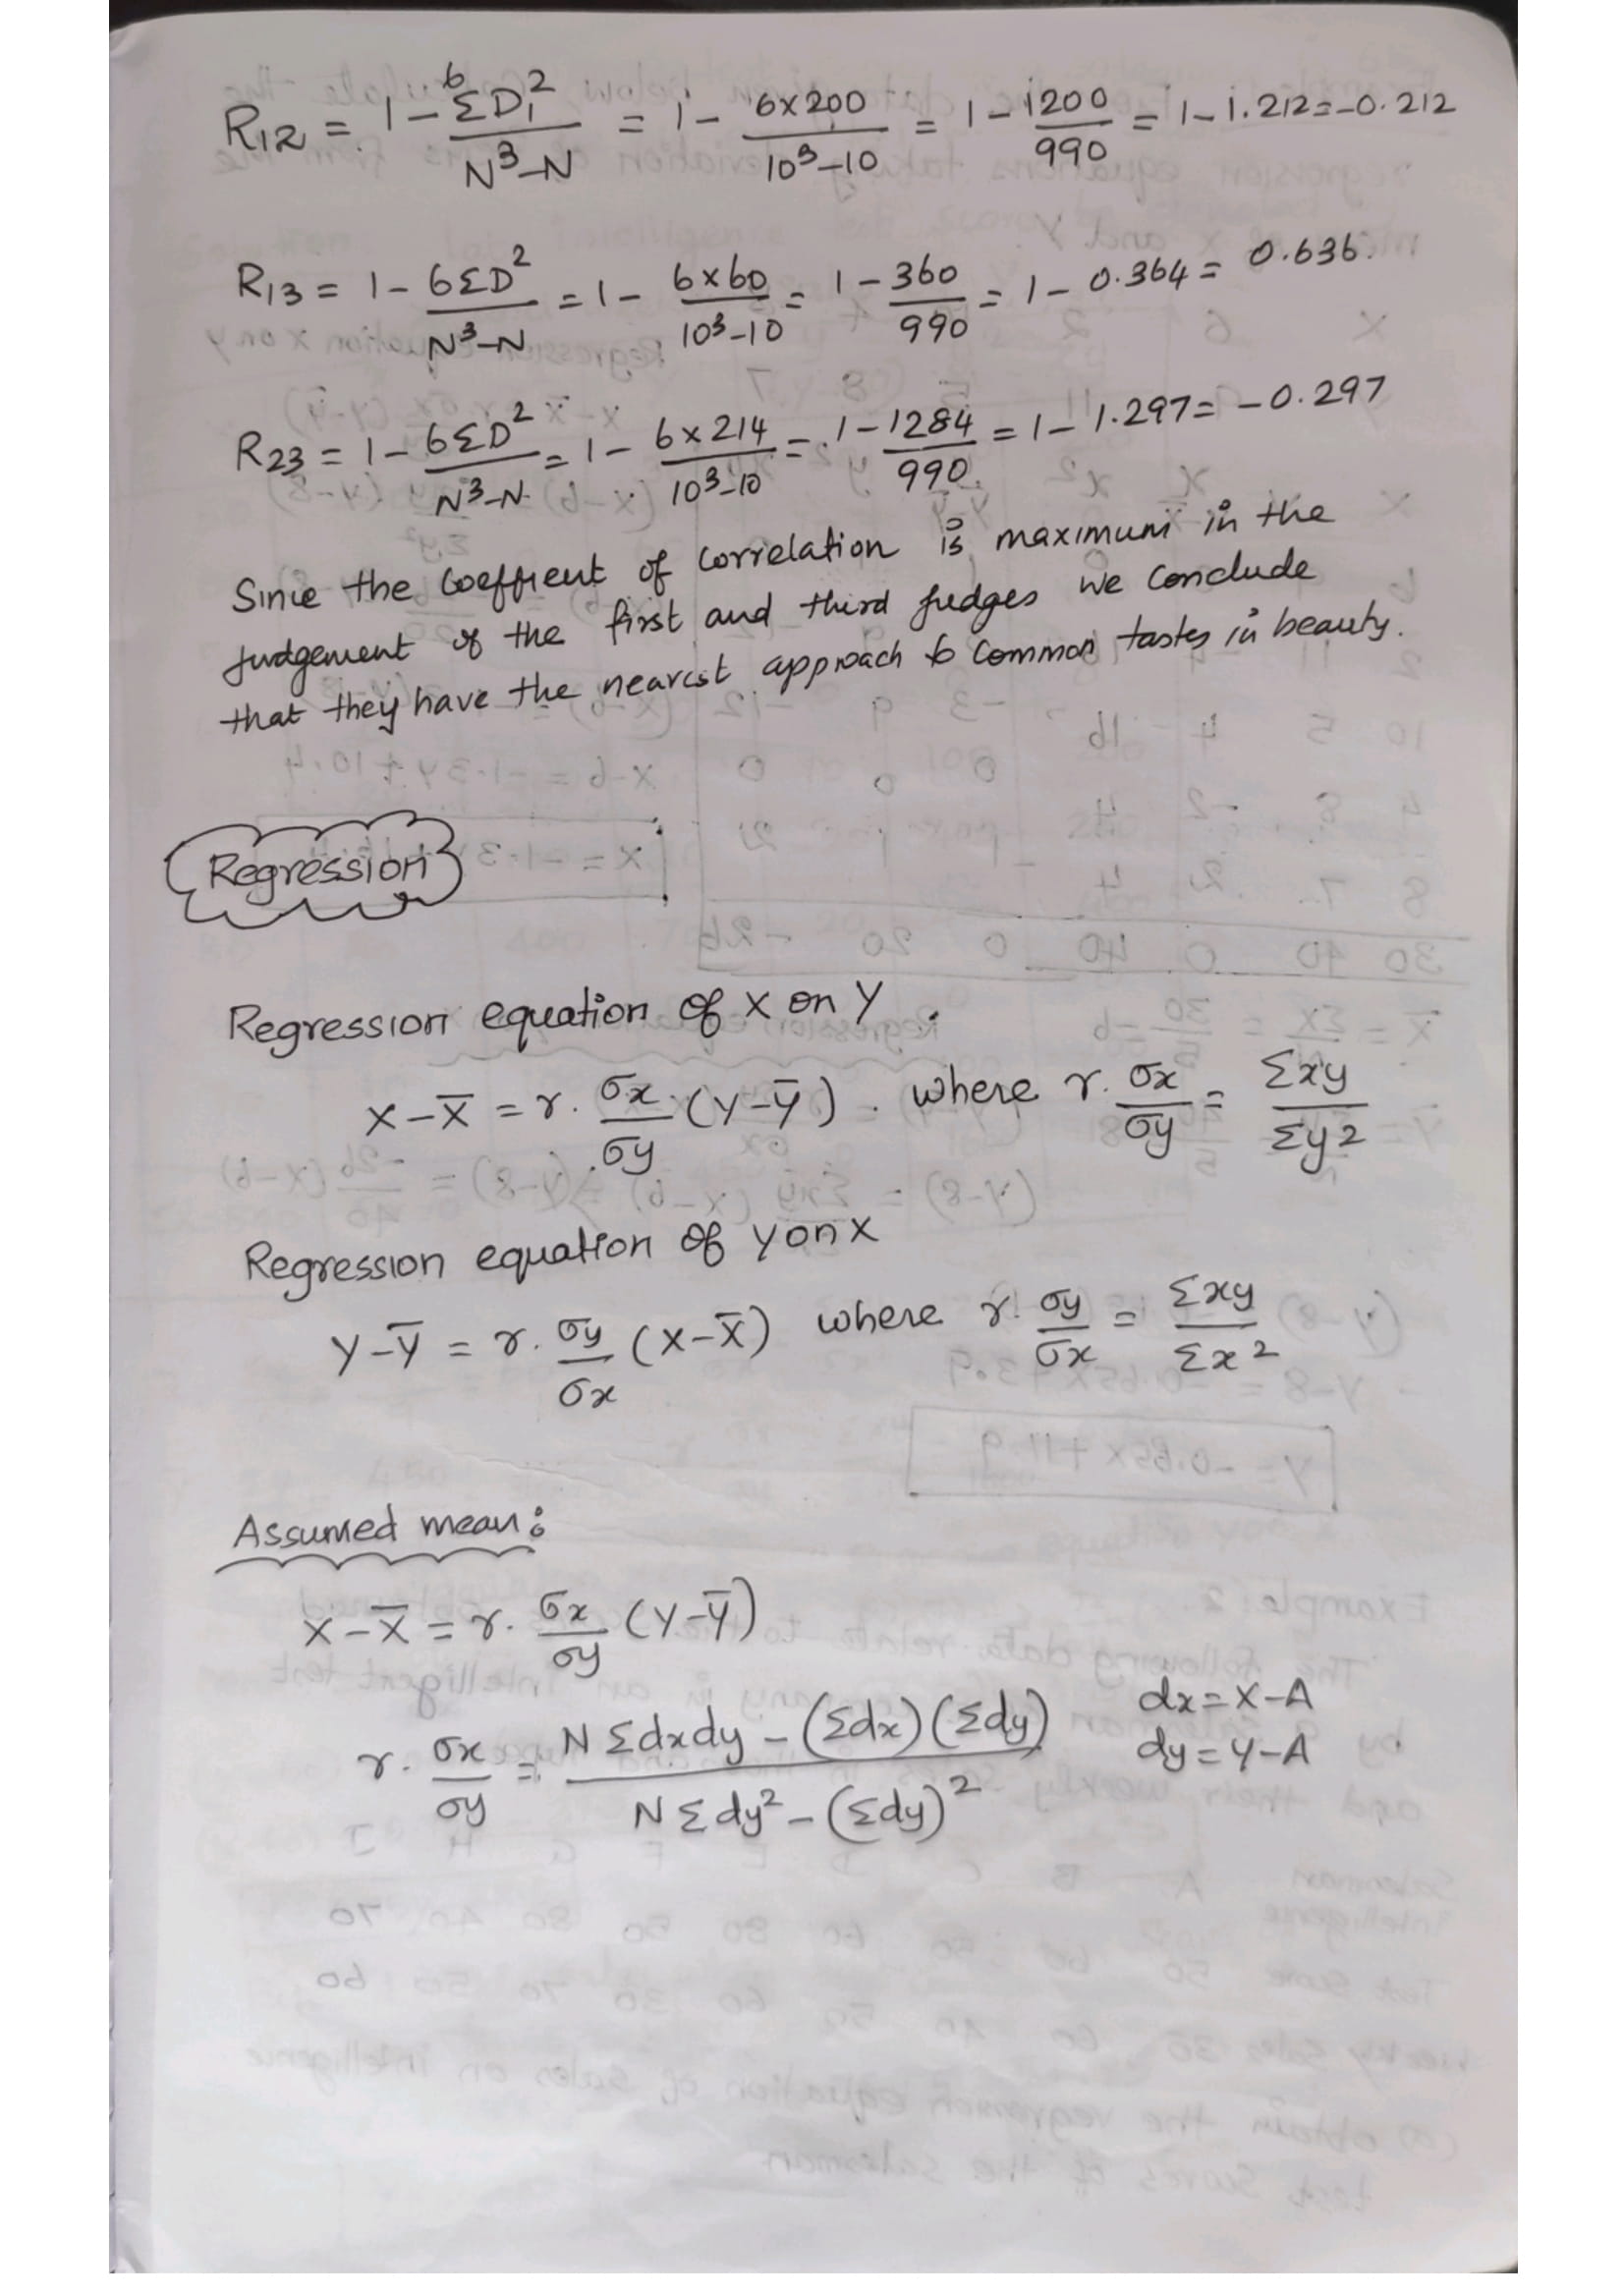 R12 = 1 - 6ΣD1² / N³-N = 1 - 6×200 / 10³-10 = 1 - 1200 / 990 = 1 - 1.212 = -0.212
R13 = 1 - 6ΣD² / N³-N = 1 - 6×60 / 10³-10 = 1 - 360 / 990 = 1 - 0.364 = 0.636.
R23 = 1 - 6ΣD² / N³-N = 1 - 6×214 / 10³-10 = 1 - 1284 / 990 = 1 - 1.297 = -0.297
Since the coeffient of correlation is maximum in the
judgement of the first and third judges we conclude
that they have the nearest approach to common tastes in beauty.
Regression
Regression equation of X on Y.
X - X̄ = r. σx / σy (Y - Ȳ). where r. σx / σy = Σxy / Σy²
Regression equation of Y on X
Y - Ȳ = r. σy / σx (X - X̄) where r. σy / σx = Σxy / Σx²
Assumed mean:
X - X̄ = r. σx / σy (Y - Ȳ)
r. σx / σy = N Σdxdy - (Σdx)(Σdy) / N Σdy² - (Σdy)² dx = X - A
dy = Y - A